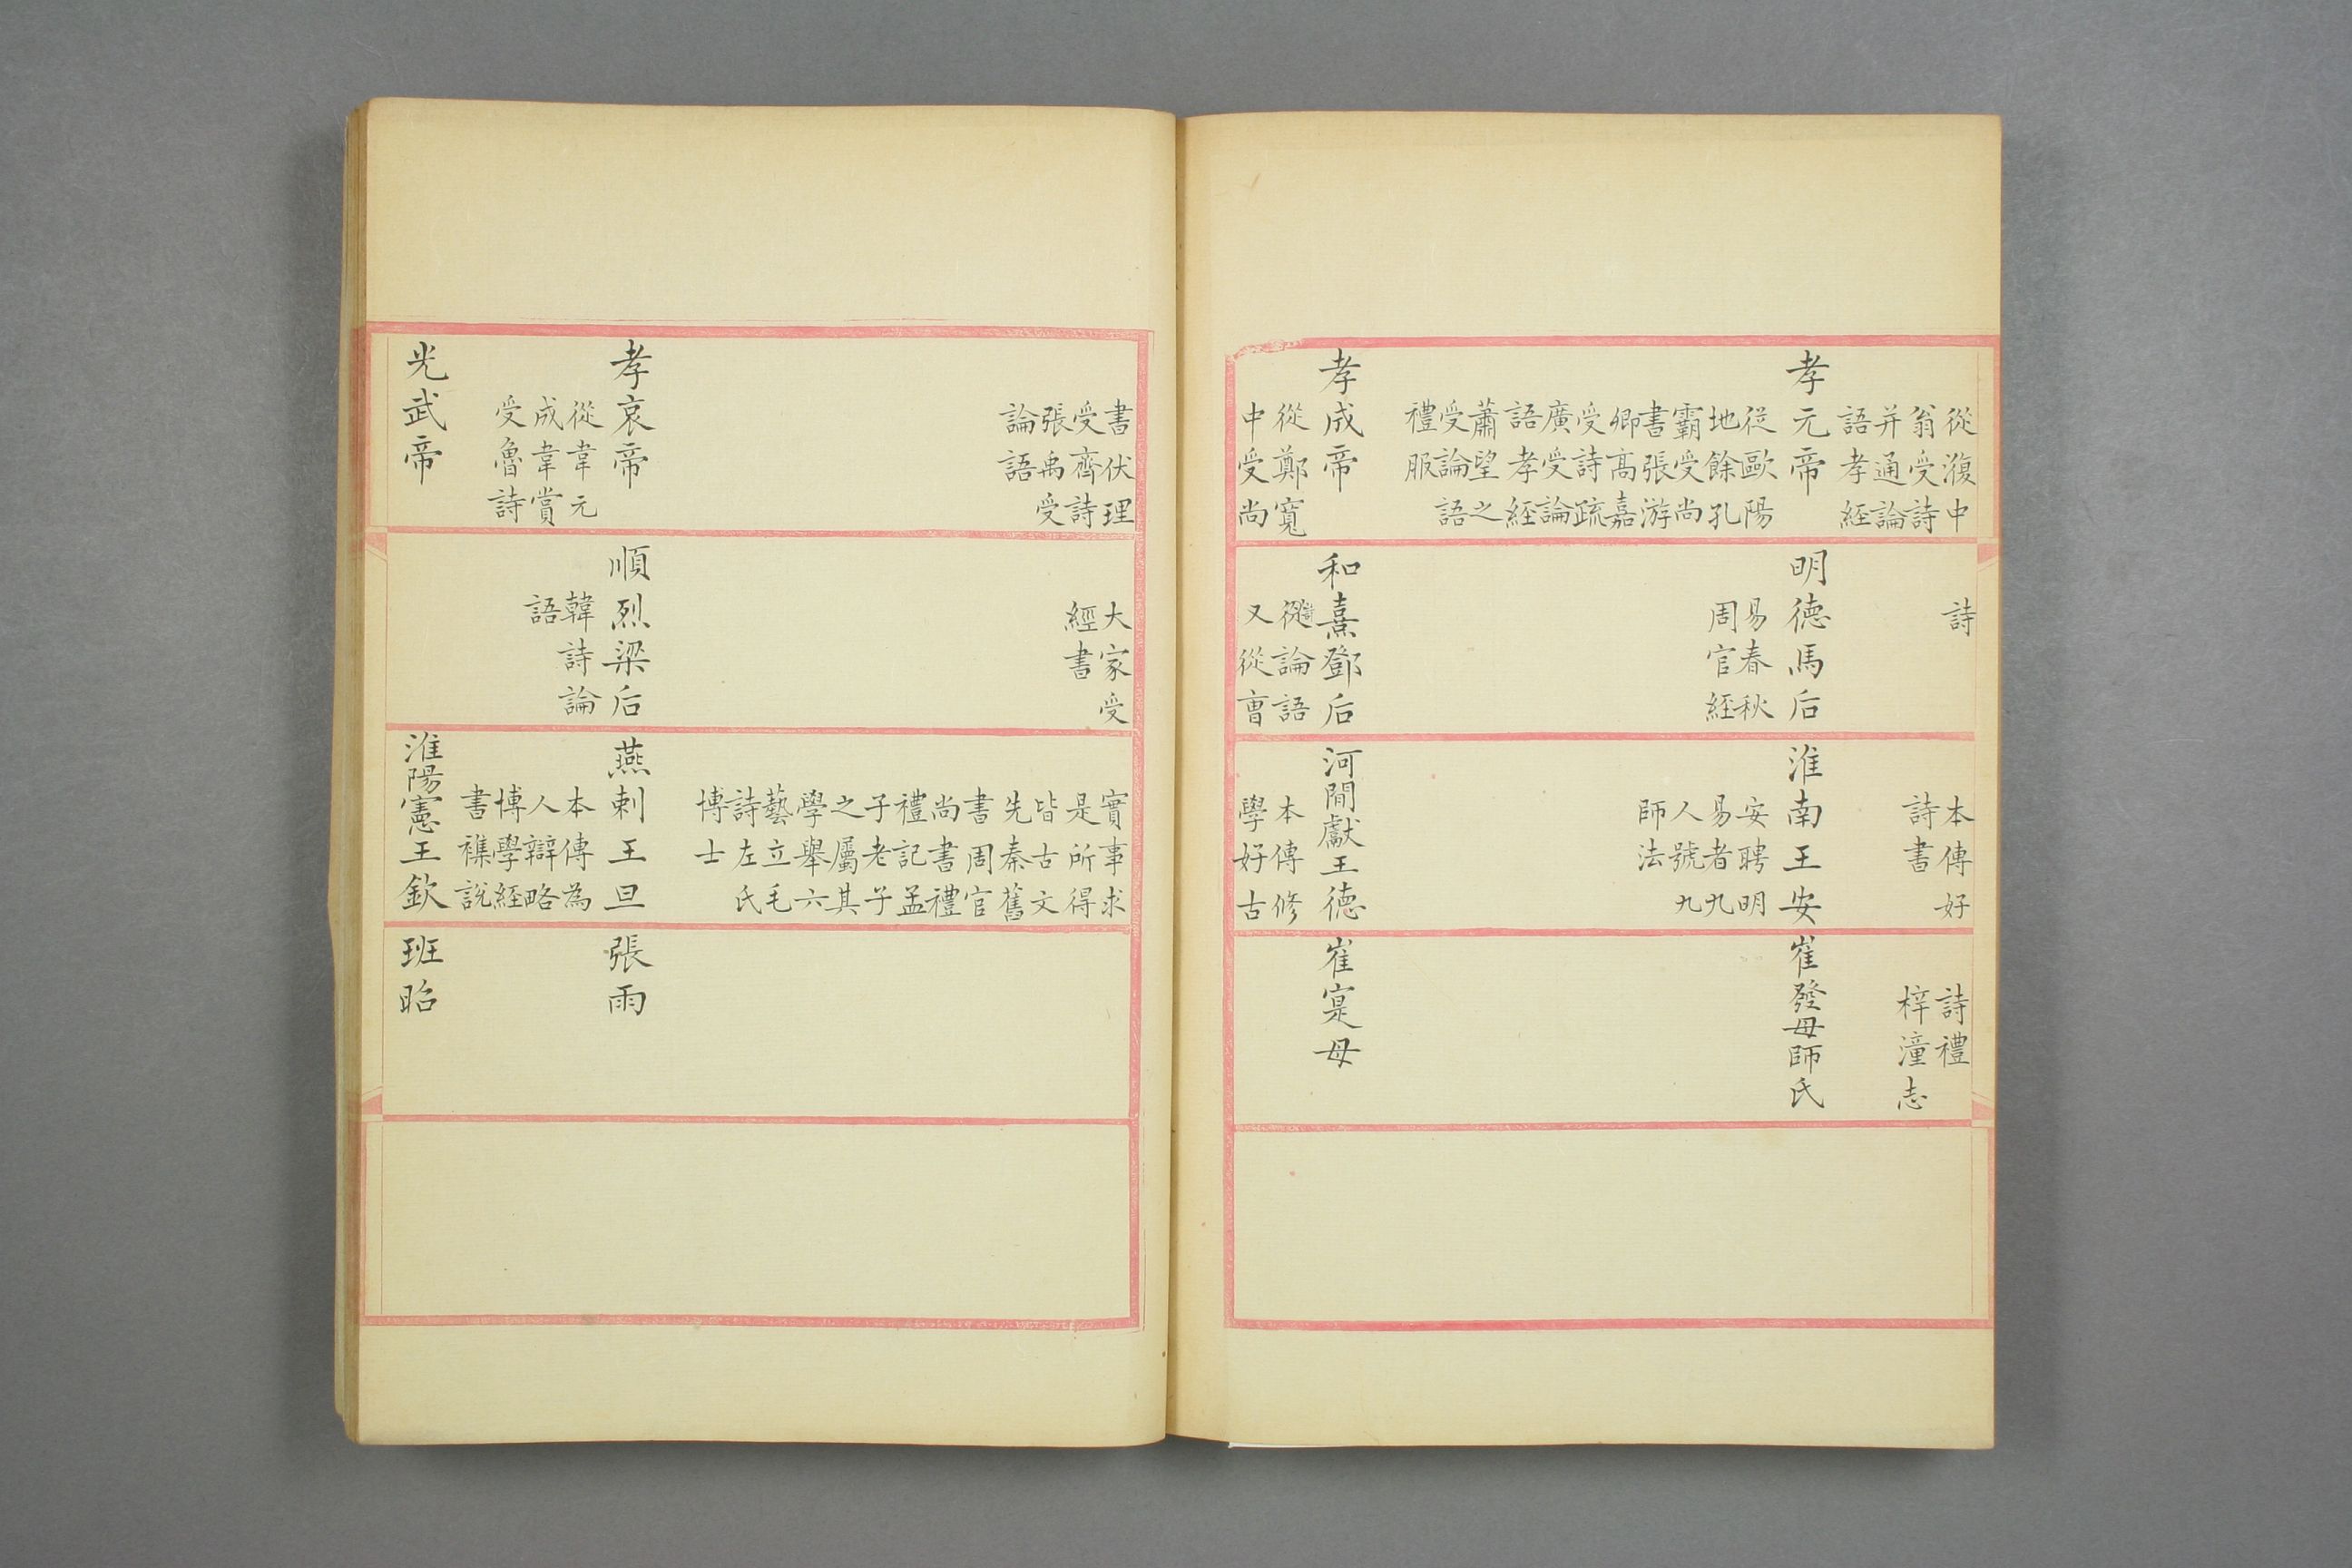 從澓中
翁受詩
并通論
語孝經
孝元帝
從歐陽
地餘孔
霸受尚
書張游
卿高嘉
受詩疏
廣受論
語孝經
蕭望之
受論語
禮服
孝成帝
從鄭寬
中受尚
詩
明德馬后
易春秋
周官經
和熹鄧后
詩論語
又從曹
本傳好
詩書
淮南王安
安聘明
易者九
人號九
師法
河間獻王德
本傳修
學好古
詩禮
梓潼志
崔發母師氏
崔寔母
書伏理
受齊詩
張禹受
論語
孝哀帝
從韋元
成韋賞
受魯詩
光武帝
大家受
經書
順烈梁后
韓詩論
語
實事求
是所得
皆古文
先秦舊
書周官
尚書禮
禮記孟
子老子
之屬其
學舉六
藝立毛
詩左氏
博士
燕刺王旦
本傳為
人辯略
博學經
書襍說
淮陽憲王欽
張雨
班昭